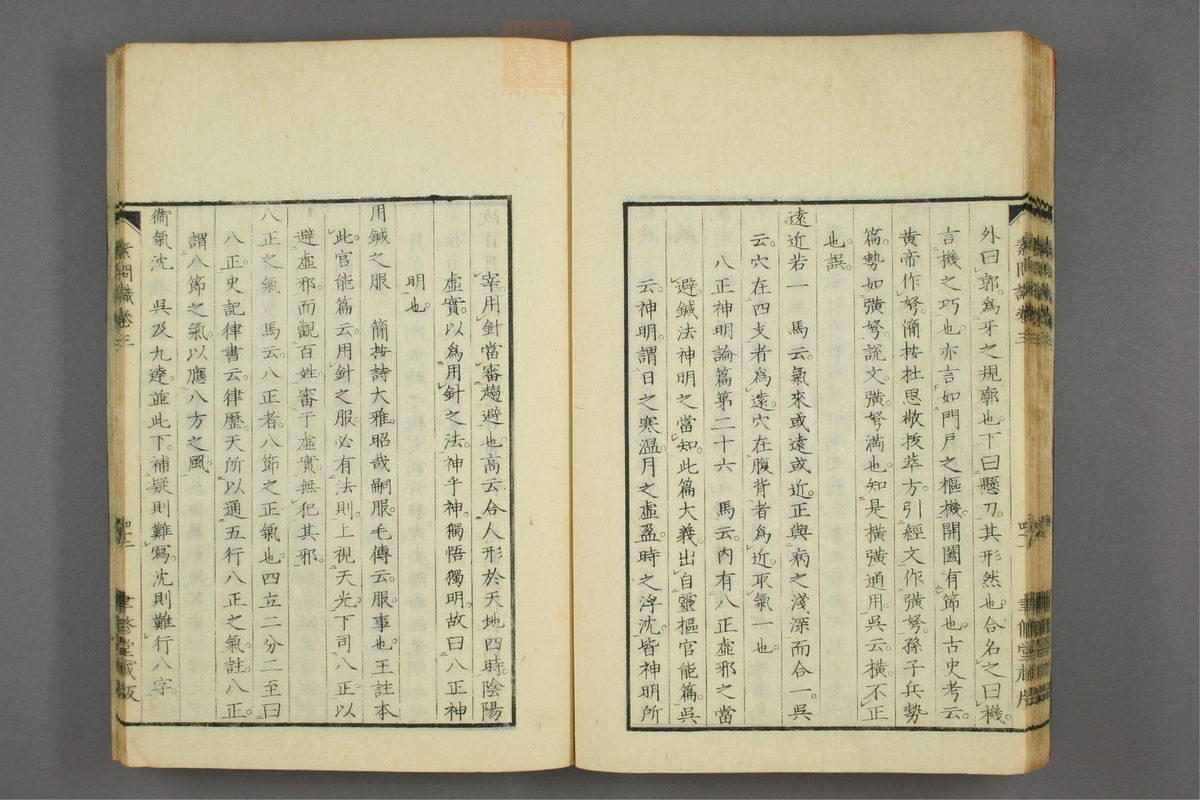 外曰郭爲牙之規廓也下曰懸刀其形然也合名之曰機
言機之巧也亦言如門戶之樞機開闔有節也古史考云
黃帝作弩簡按杜思敬拔萃方引經文作彍弩孫子兵勢
篇勢如彍弩說文彍弩滿也知是橫彍通用吳云橫不正
也誤
遠近若一 馬云氣來或遠或近正與病之淺深而合一吳
云穴在四支者爲遠穴在腹背者爲近取氣一也
八正神明論篇第二十六 馬云內有八正虛邪之當
避鍼法神明之當知此篇大義出自靈樞官能篇吳
云神明謂日之寒溫月之虛盈時之浮沈皆神明所
宰用針當審趨避也高云合人形於天地四時陰陽
虛實以爲用針之法神乎神獨悟獨明故曰八正神
明也
用鍼之服 簡按詩大雅昭哉嗣服毛傳云服事也王註本
此官能篇云用針之服必有法則上視天光下司八正以
避虛邪而觀百姓審于虛實無犯其邪
八正之氣 馬云八正者八節之正氣也四立二分二至曰
八正史記律書云律歷天所以通五行八正之氣註八正
謂八節之氣以應八方之風
衞氣沈 吳及九達並此下補疑則難寫沈則難行八字
素問識卷三
四十二
聿修堂藏版